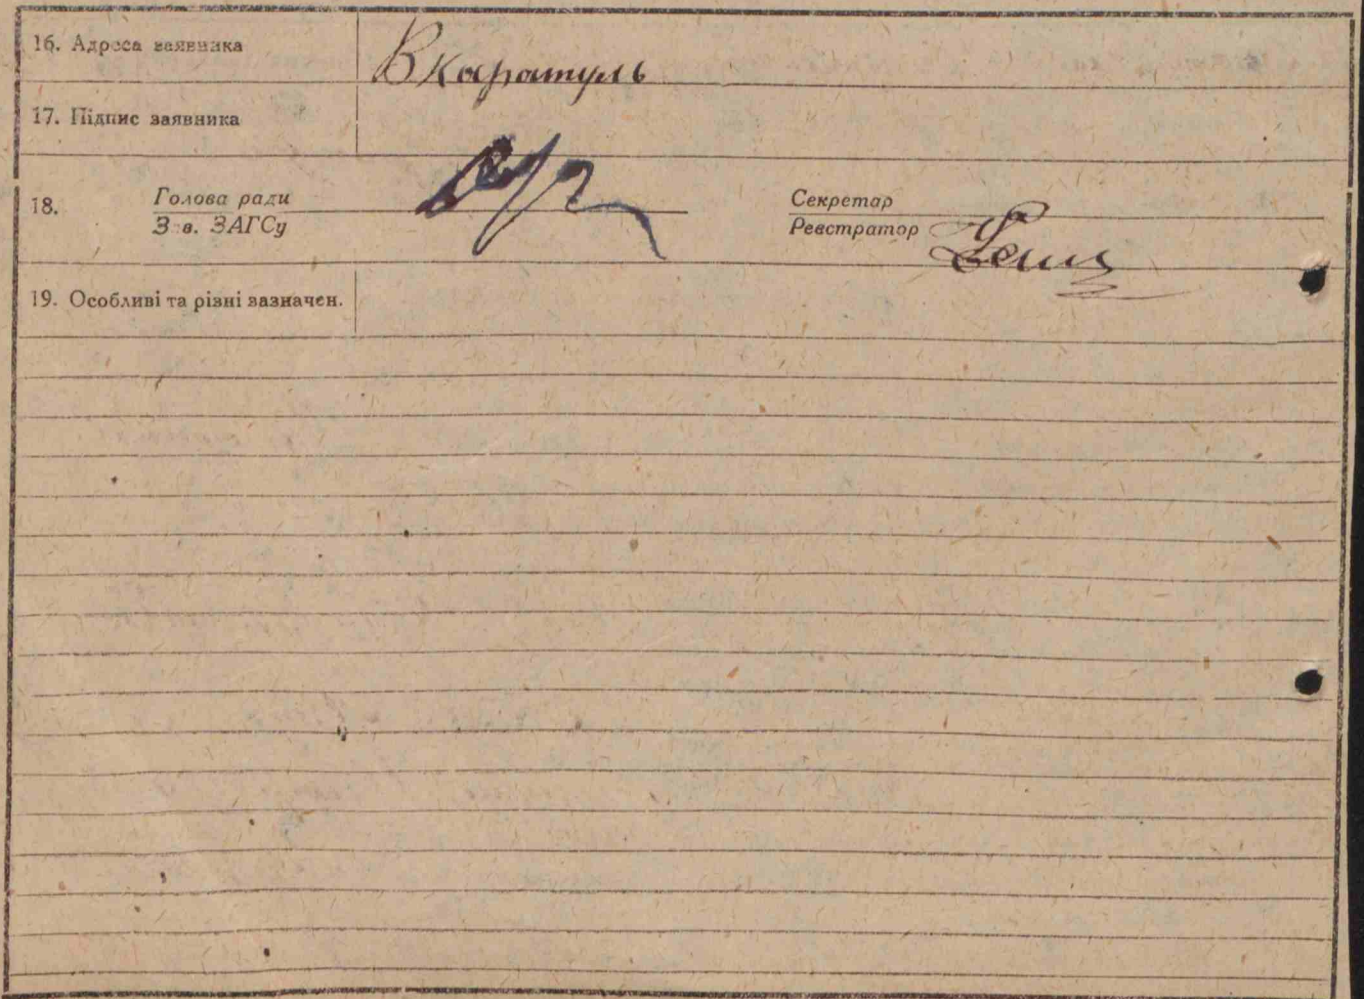 16. Адреса заявника
В Каратуль
17. Підпис заявника
18. Голова ради
Зав. ЗАГСу
Секретар
Реєстратор
19. Особливі та різні зазначен.